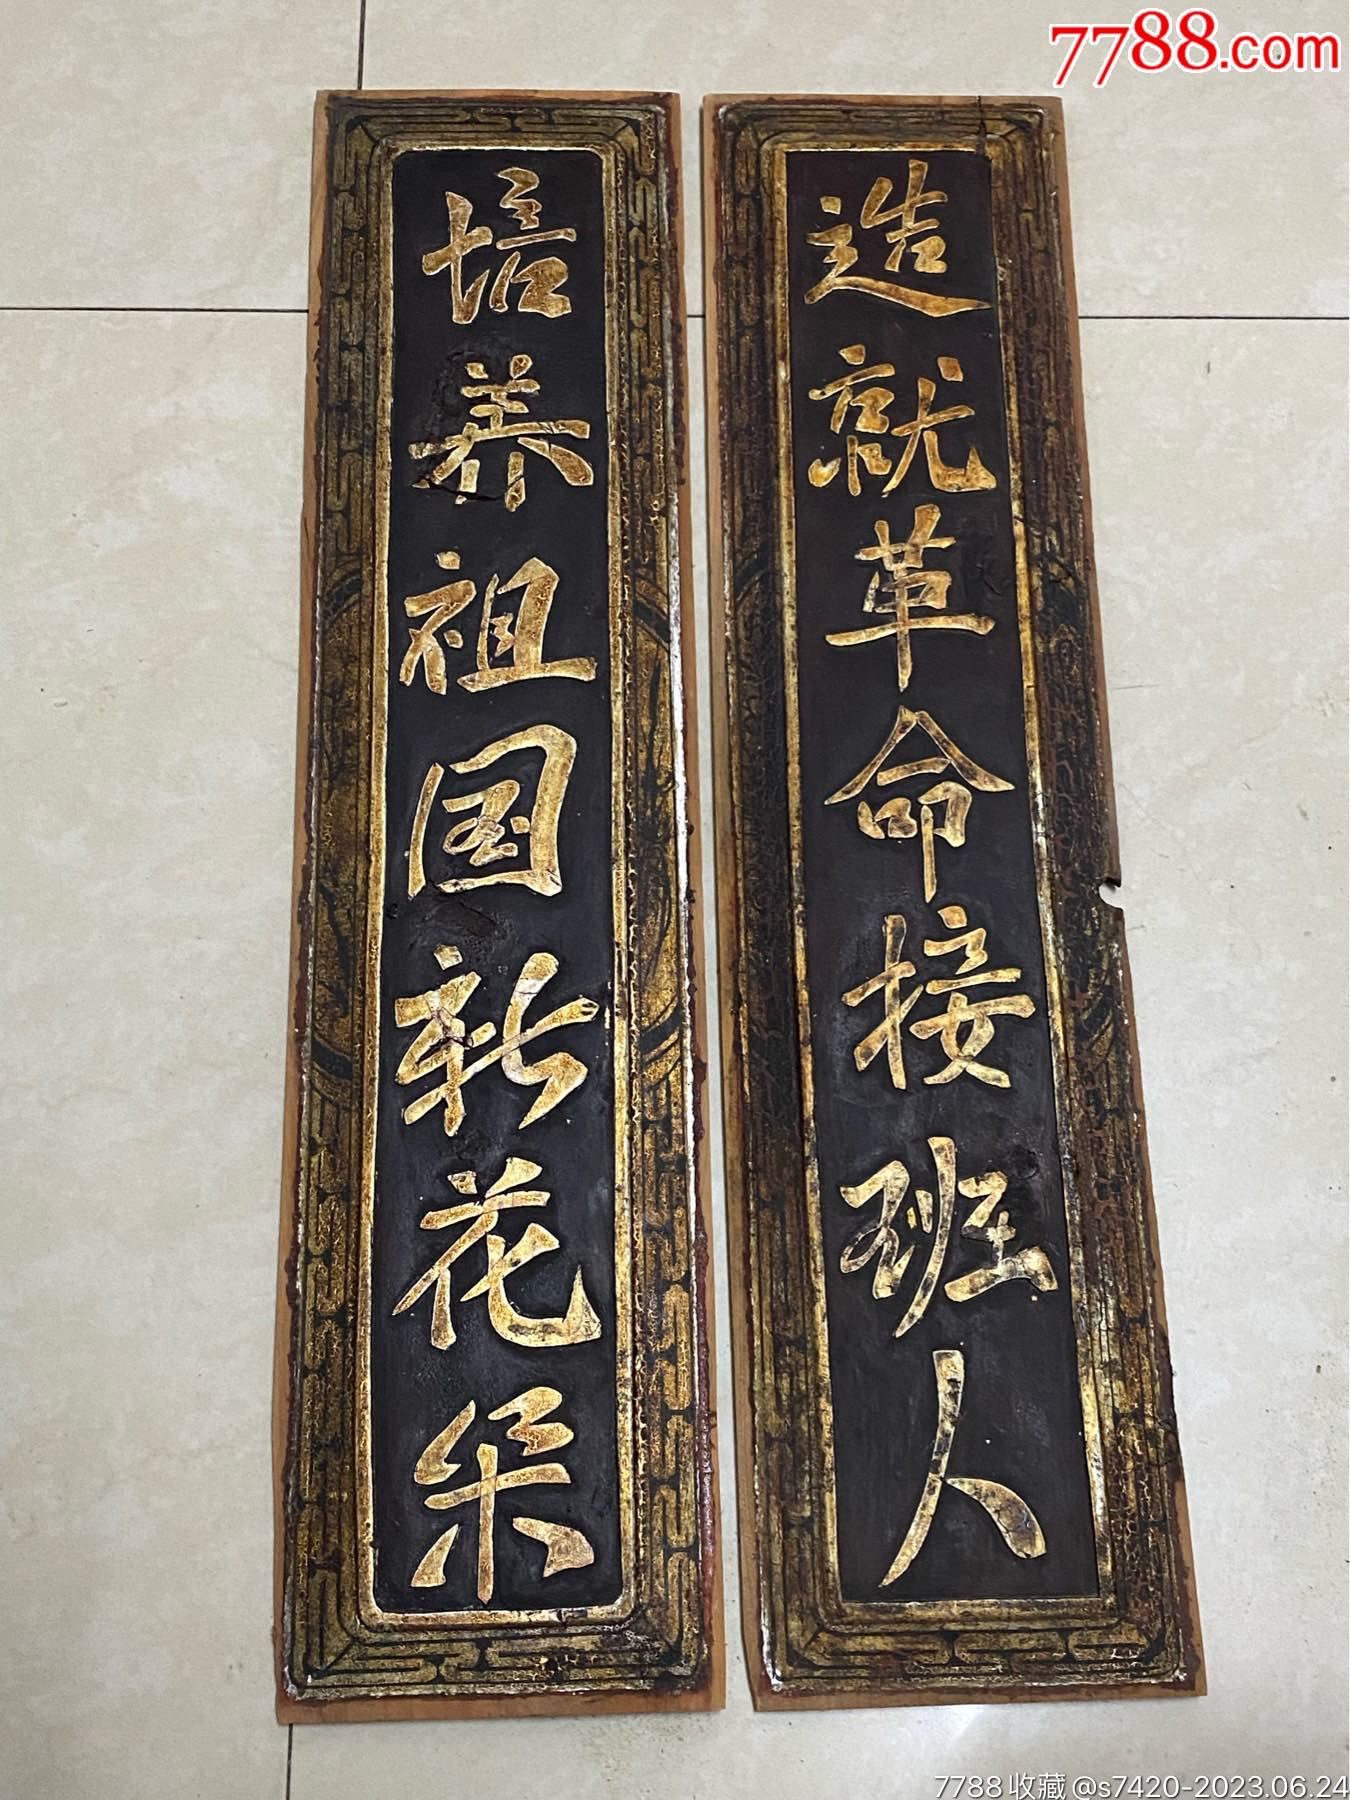 7788.com
造就革命接班人
培养祖国新花朵
7788收藏@s7420-2023.06.24